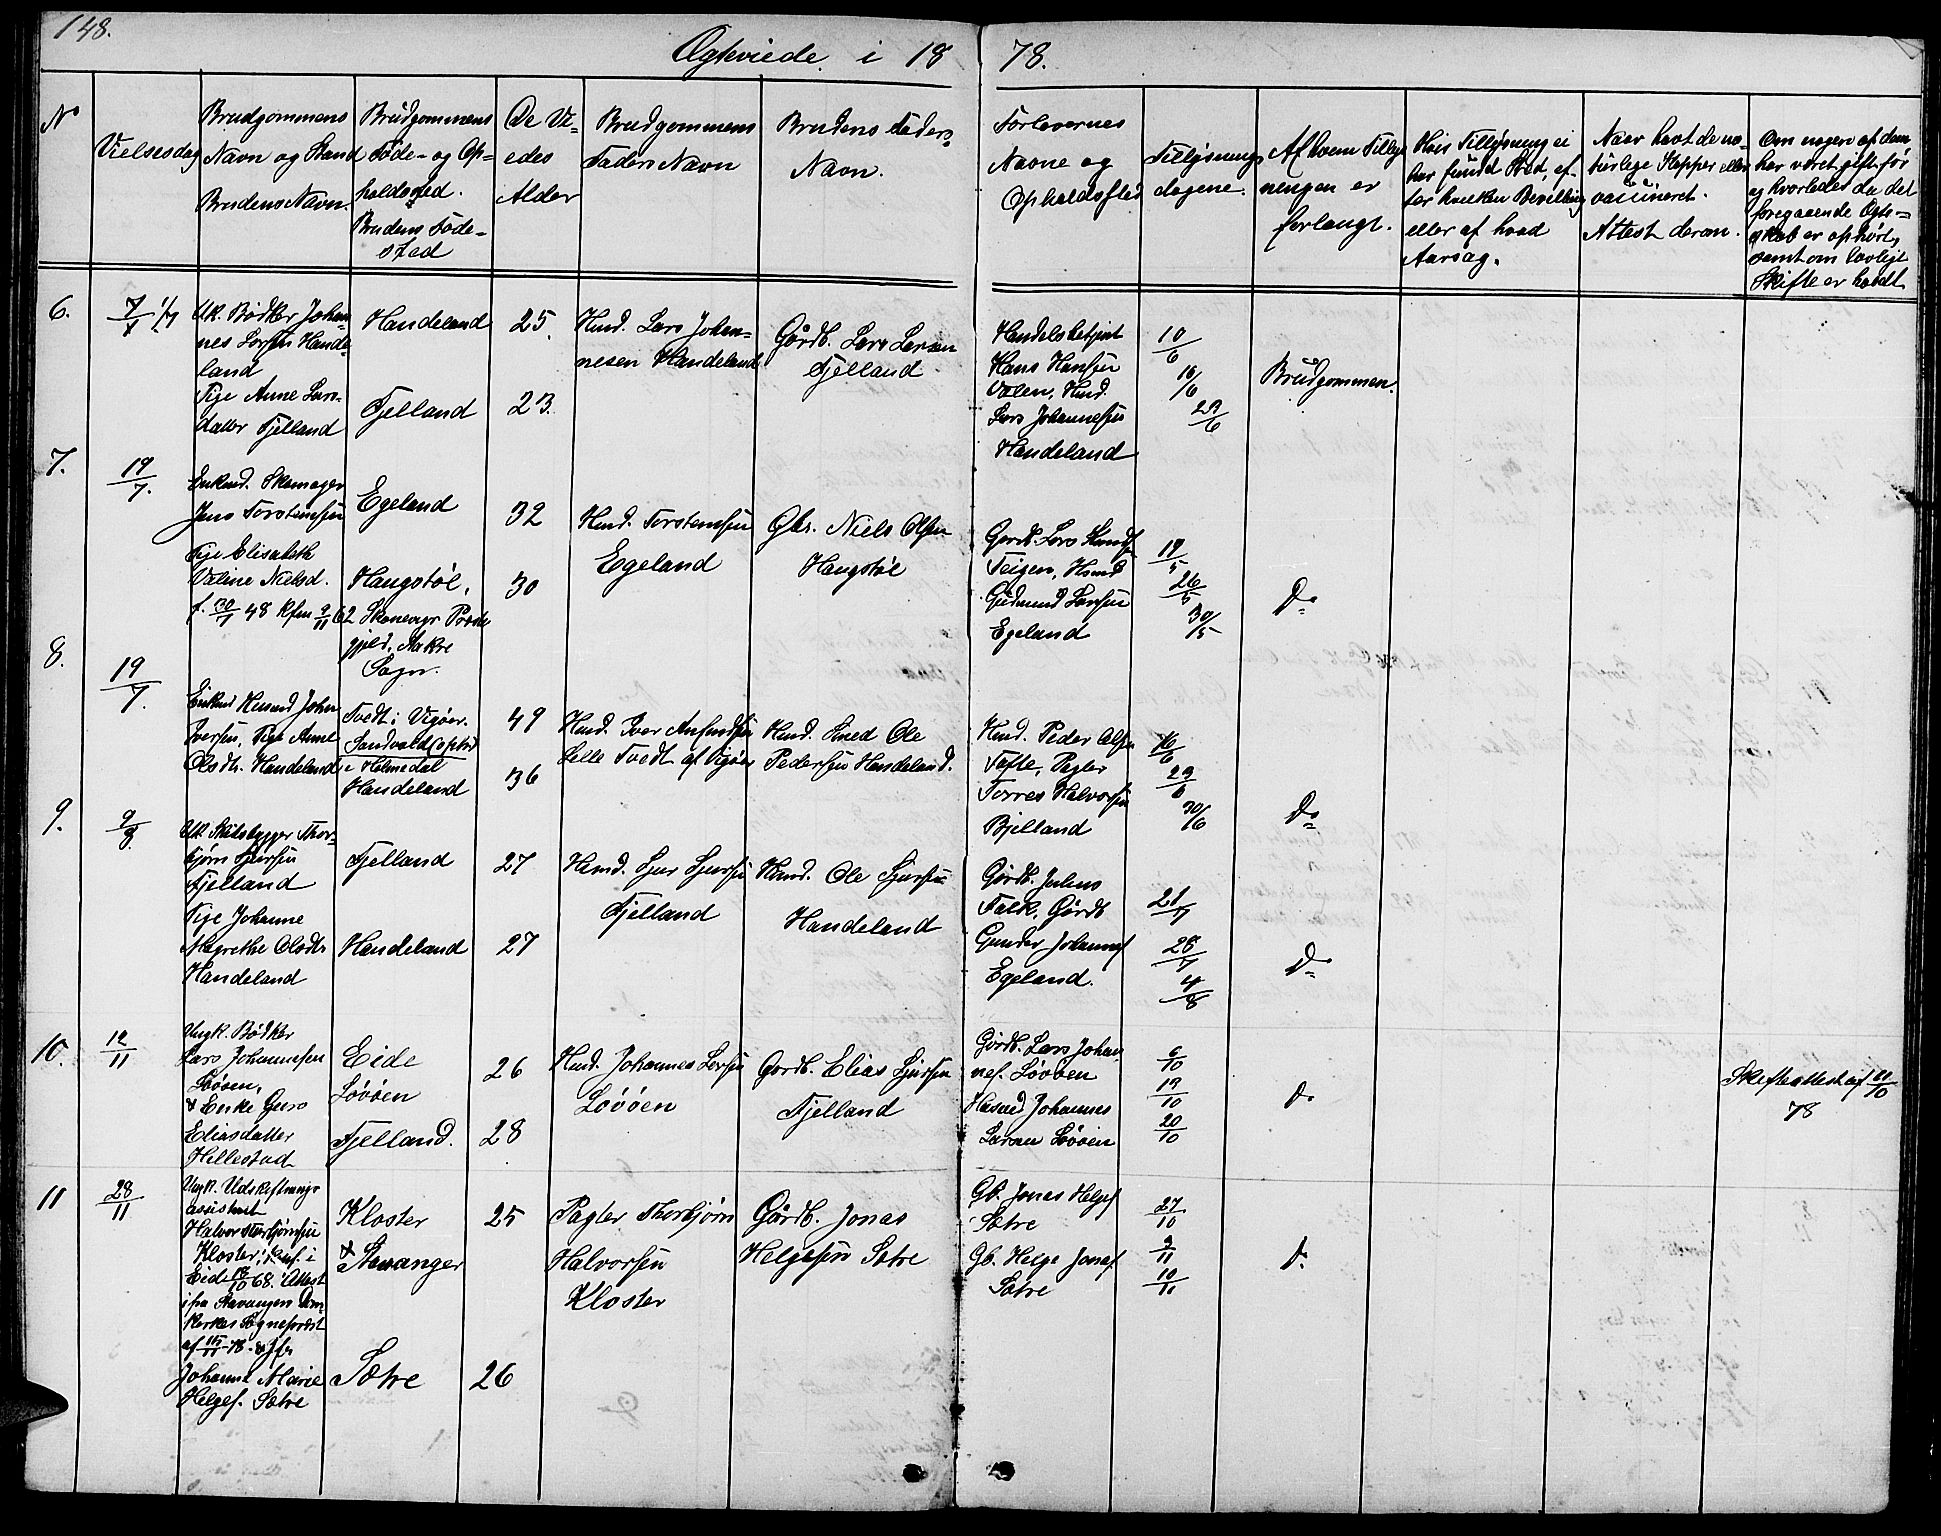 148.
Ægteviede i 18 78.
No
Vielsesdag
Brudgommens
Navn og Stand
Brudens Navn.
Brudgommens
Føde- og Op-
holdssted.
Brudens Føde-
sted
De Vi-
edes
Alder
Brudgommens
Faders Navn
Brudens Faders
Navn.
Forlovernes
Navne og
Opholdssted
Tillysnings
dagene.
Af hvem Tillys
ningen er
forlangt.
Hvis Tillysning ei
har fundet Sted, ef-
ter hvilken Bevilling
eller af hvad
Aarsag.
Naar havt de na-
turlige Kopper eller
vaccineret.
Attest derom.
Om nogen af dem
har været gift før
og hvorledes da det
foregaaende Ægte-
skab er ophørt,
samt om lovligt
Skifte er holdt
6.
Uk. Bødker Johan-
nes Larsen Hande-
land
Pige Anne Lars-
datter Fjelland
Handeland
Fjelland
25.
23.
Husd. Lars Johan-
nesen Handeland
Gårdb. Lars Larsen
Fjelland
Handelsbetjent
Hans Hansen
Valen, Husd.
Lars Johannesen
Handeland
10/6
16/6
23/6
Brudgommen.
7.
19/7.
Enkmd. Skomager
Jens Torstensen
Pige Elisabeth
Valine Nielsd.
f. 30/7 48 kfm 9/11 62
Egeland
Haugstøl,
Skonevigs Præste
gjeld, Aakre
Sogn.
32
30
Husd. Torstensen
Egeland
Gbr. Niels Olsen
Haugstøl
Gardb. Lars Knuds
Teigen, Husd
Gudmund Larsen
Egeland
19/5
26/5
30/5
Do
8.
19/7.
Enkmd Husmd John
Iversen, Pige Anne
Olsdtr. Handeland
Tvedt i Vigøer.
Sandvald (ophold
i Holmedal
Handeland
49
36
Husd. Iver Amundsen
Selle Tvedt af Vigøer
Husd. Smed Ole
Pedersen Handeland.
Husd. Peder Olsen
Tofte, Pagter
Torres Halvorsen
Bjelland
16/6
23/6
30/6
Do
9.
9/8
Uk Skibsbygger Thor-
bjørn Sjursen
Fjelland
Pige Johanne
Magrethe Olsdtr
Handeland
Fjelland
Handeland
27
27
Husmd. Sjur Sjursen
Fjelland
Husmd. Ole Sjursen
Handeland
Gårdb. Julius
Falk, Gårdb
Gunder Johannes
Egeland.
21/7
28/7
4/8
Do
10.
12/11
Ungk. Bødker
Lars Johannesen
Løvøen,
& Enke Guro
Eliasdatter
Hellestad
Eide
Løvøen
Fjelland.
26
28
Husd. Johannes Larsen
Løvøen
Gardb. Elias Sjursen
Fjelland
Gårdb. Lars Johan
nes. Løvøen
Husmd Johannes
Larsen Løvøen
6/10
13/10
20/10
Do
Skifteattest af 21/10
78
11
28/11
Ungk. Udskiftnings
assistent
Halvor Thorbjørnsen
Kloster; konf. i
Eide 18/10 68. Attest
ifra Stavangers Dom-
kirkes Sognepræst
af 15/11 78. & Jfr
Johanne Marie
Helges. Sætre
Kloster
& Stavanger
Sætre
25
26
Pagter Thorbjørn
Halvorsen
Kloster
Gårdb. Jonas
Helgesen Sætre
Gb. Jonas Helges
Sætre
Gb. Helge Jonas
Sætre
27/10
3/11
10/11
Do